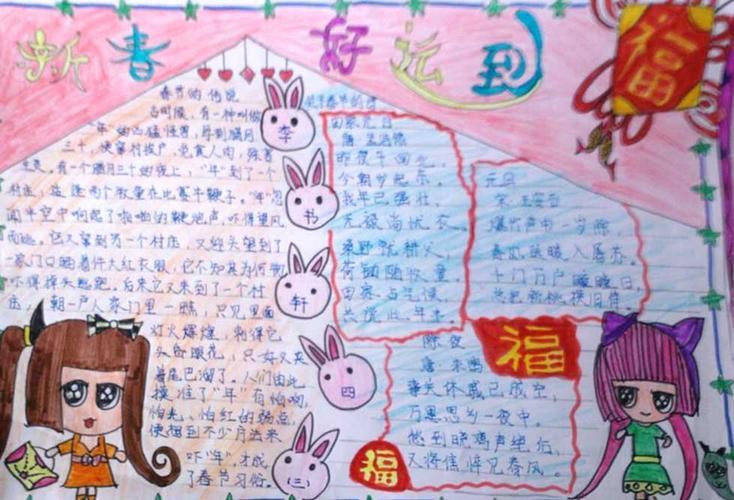 新春 好运到
福
春节的传说
古时候，有一种叫做
“年”的凶猛怪兽，每到腊月
三十，便窜村挨户，觅食人肉，残害
生灵。有一个腊月三十的晚上，“年”到了一个
村庄，适逢两个牧童在比赛牛鞭子。“年”忽
闻半空中响起了啪啪的鞭炮声，吓得望风
而逃。它又窜到另一个村庄，又迎头望到了
一家门口晒着件大红衣服，它不知其为何物
吓得掉头逃跑。后来它又来到了一个村
庄，朝一户人家门里一瞧，只见里面
灯火辉煌，刺得它
头昏眼花，只好又夹
着尾巴溜了。人们由此
摸准了“年”有怕响，
怕光、怕红的弱点，
便想到不少方法来
吓“年”，才成
了春节习俗。
李
书
轩
四
(二)
关于春节的诗
田家元日
唐 孟浩然
昨夜斗回北，
今朝岁起东。
我年已强壮，
无禄尚忧农。
桑野就耕父，
荷锄随牧童。
田家占气候，
共说此年丰。
元日
宋 王安石
爆竹声中一岁除，
春风送暖入屠苏。
千门万户曈曈日，
总把新桃换旧符
除夜
唐·来鹄
事关休戚已成空，
万里相思一夜中。
愁到晓鸡声绝后，
又将憔悴见春风。
福
福